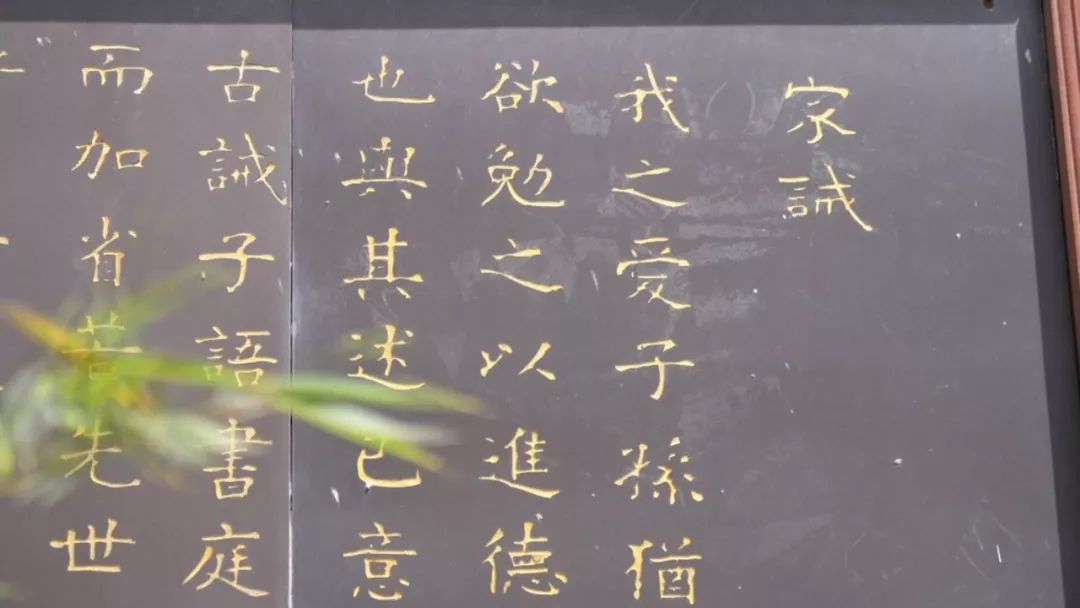 家誡
我之愛子孫猶
欲勉之以進德
也與其述己意
古誡子語書庭
而加省昔先世